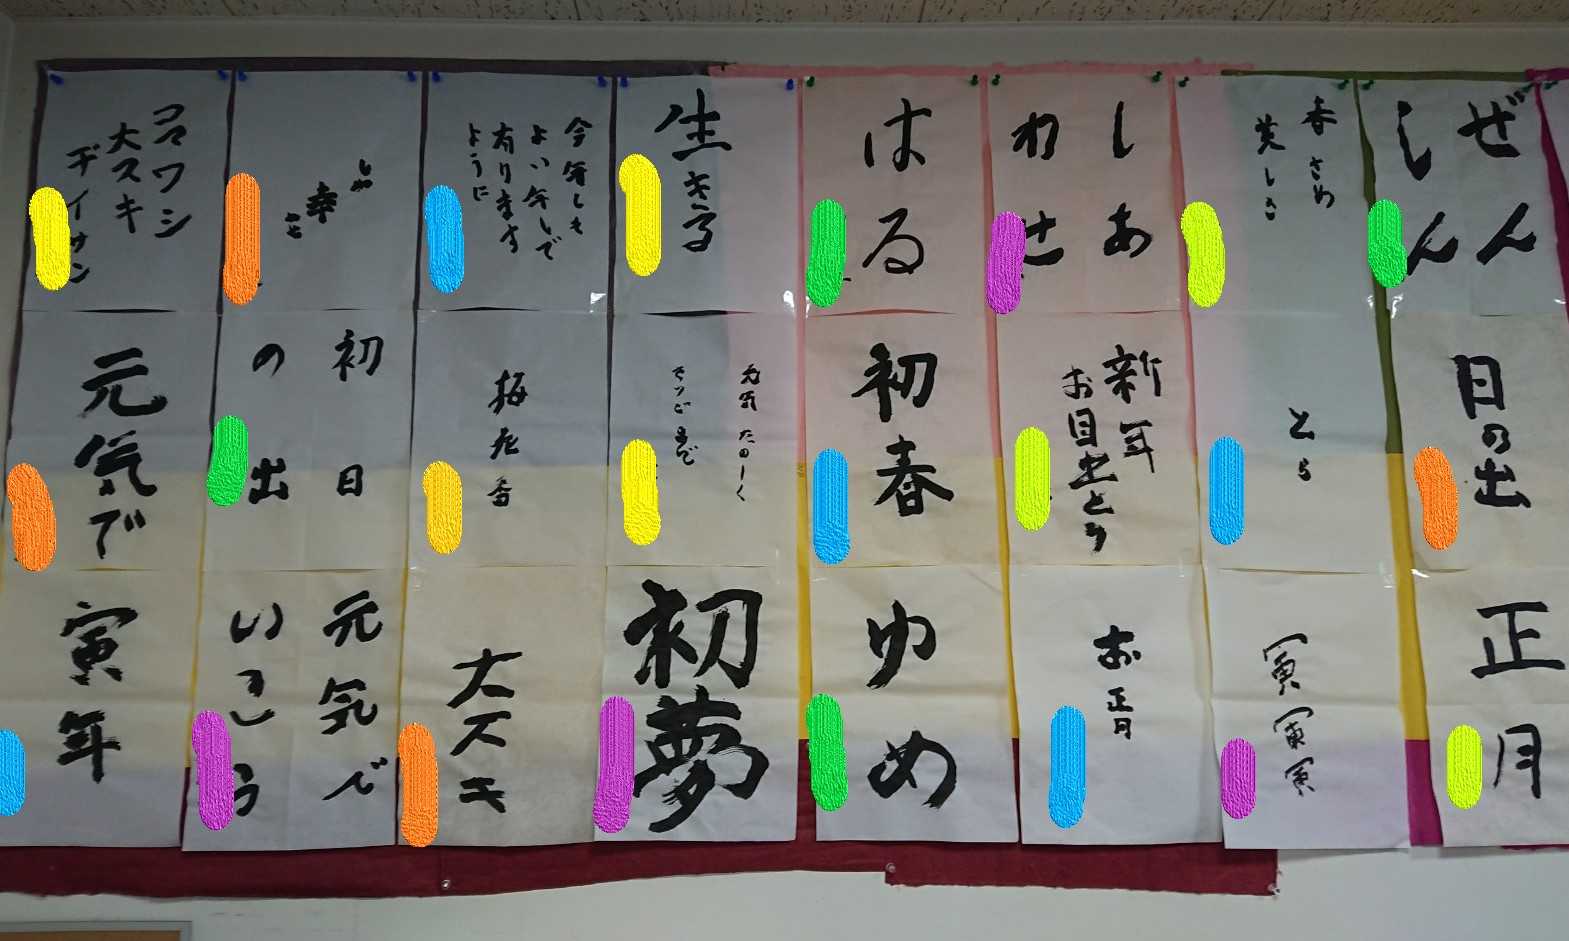 ぜん
しん
春さめ
美しさ
しあ
わせ
はる
生きる
今年しも
よい年しで
有ります
ように
幸
コマワシ
大スキ
ヂイサン
日の出
とら
新年
お目出とう
初春
元気たのーく
梅花香
初日
の出
元気で
正月
寅寅寅
お正月
ゆめ
初夢
大スキ
元気で
いこう
寅年